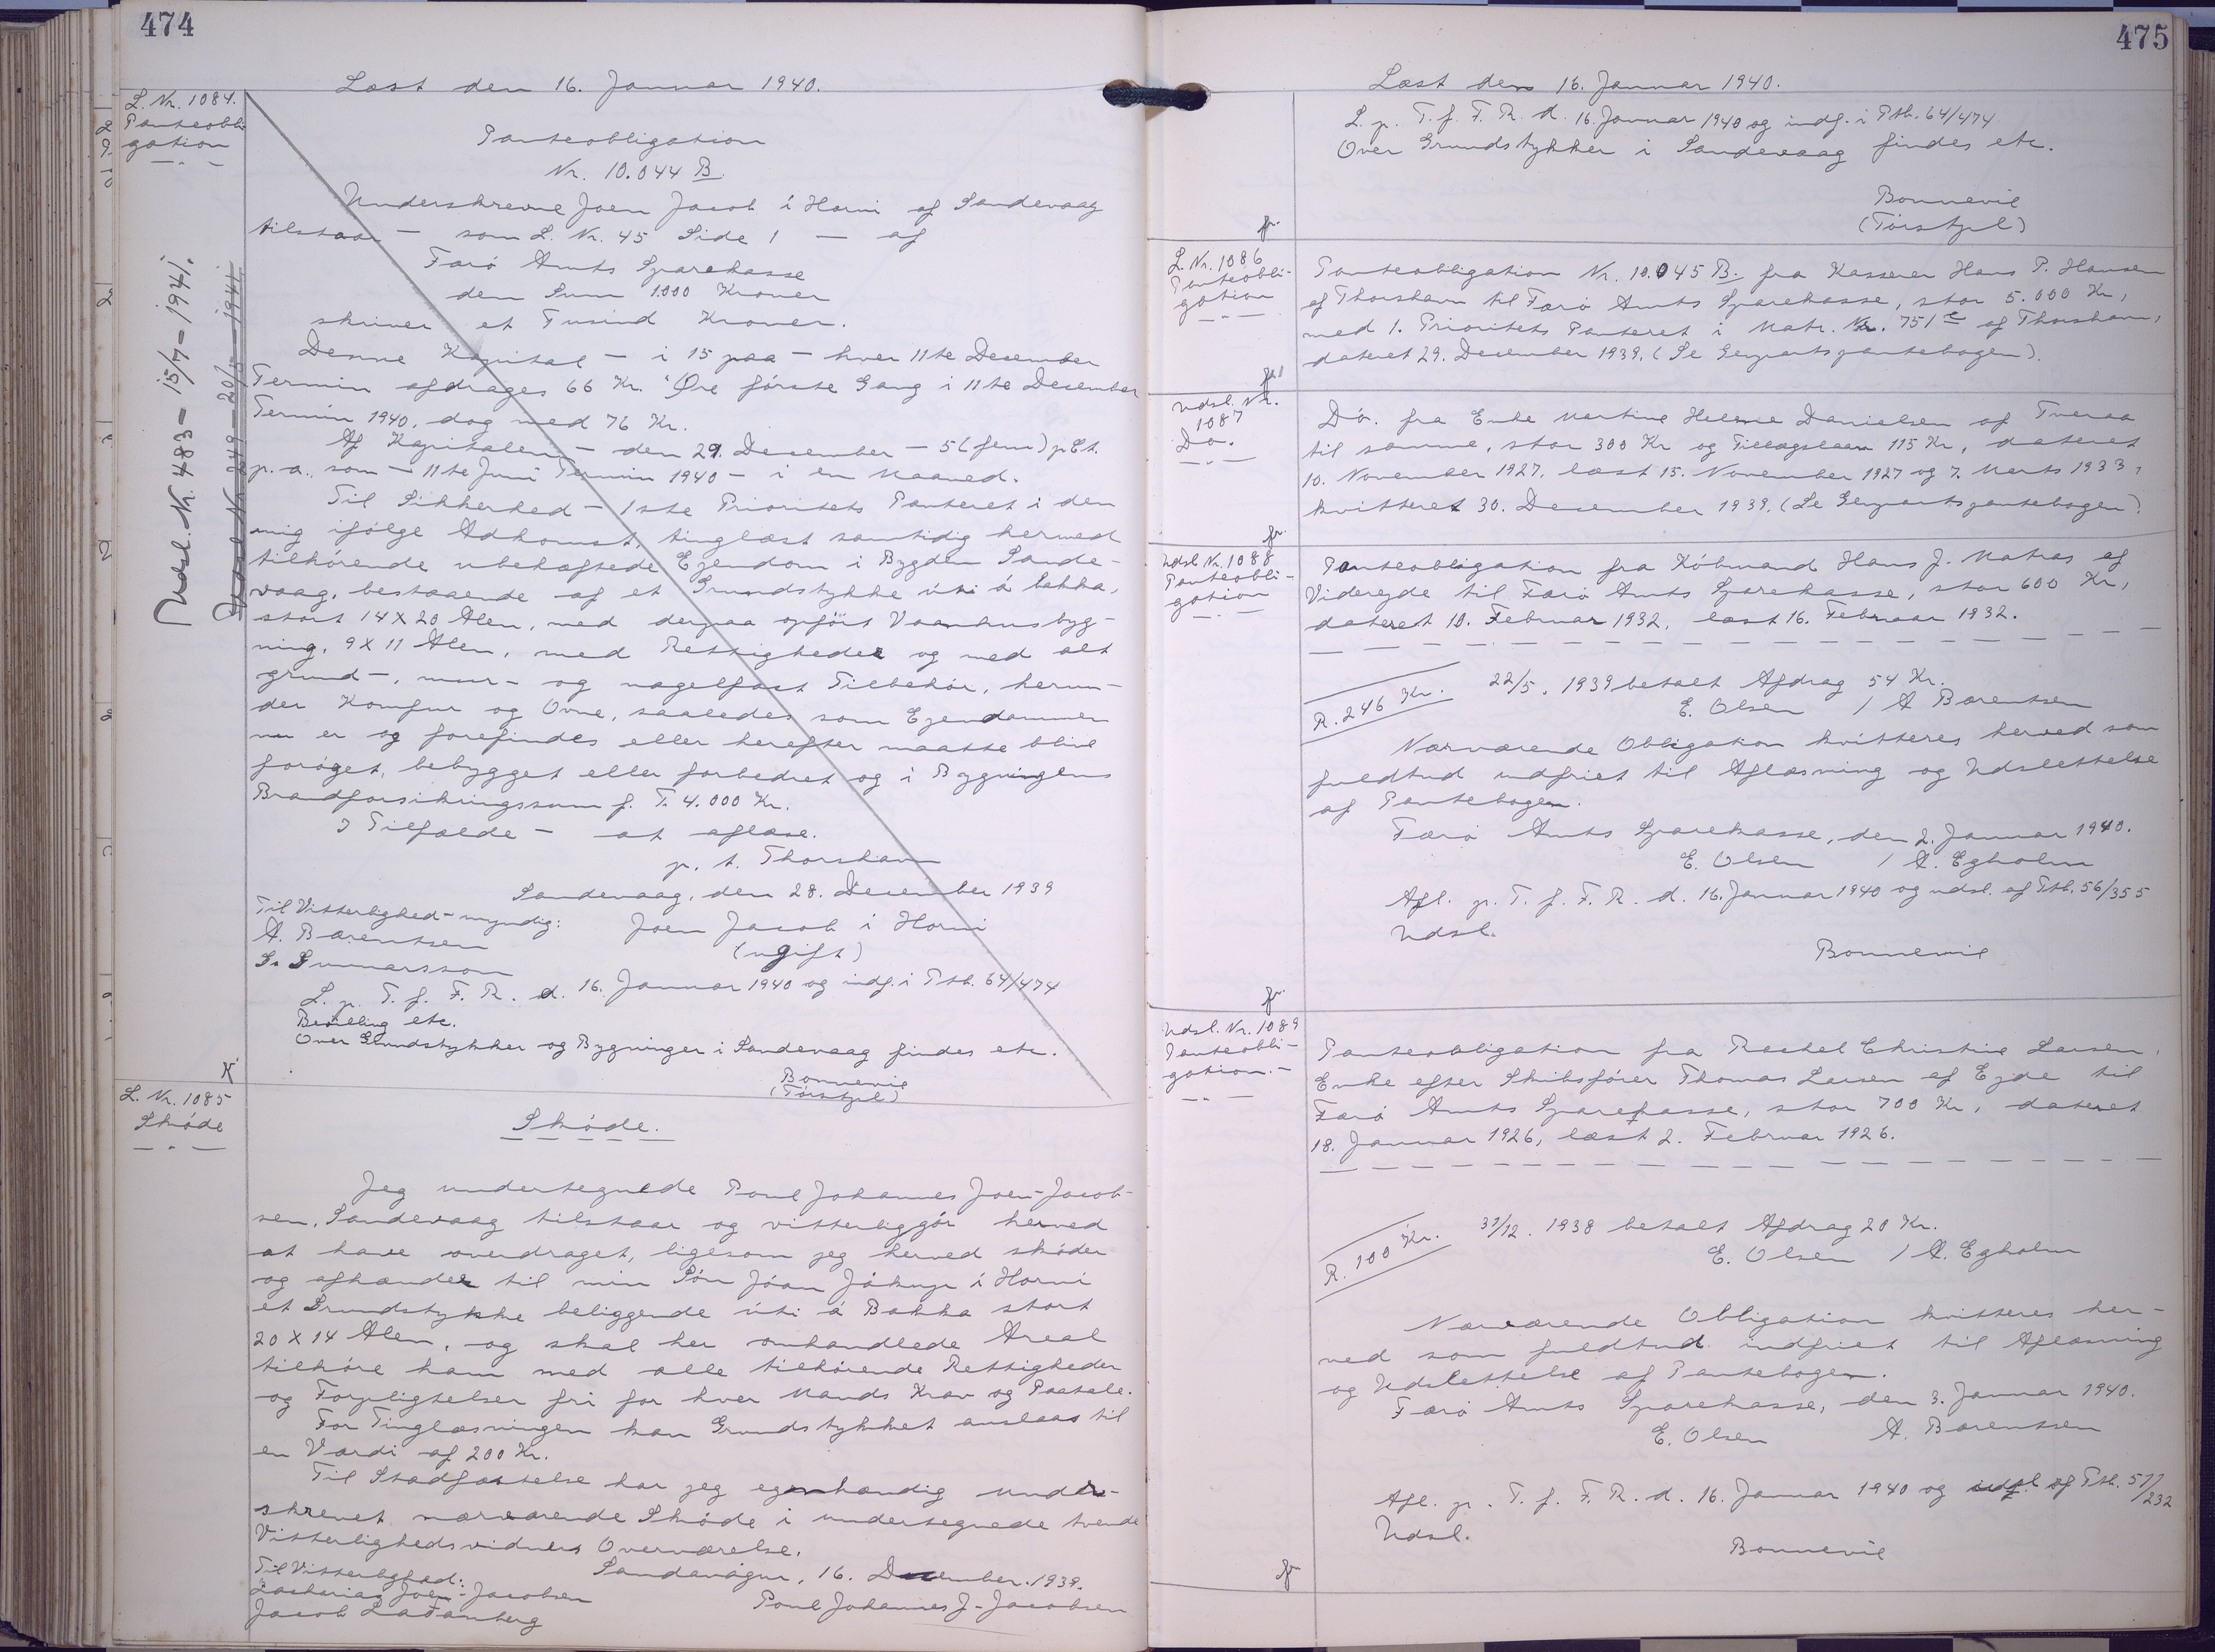 474
Læst den 16. Januar 1940.
L. Nr. 1084.
Panteobli-
gation
Panteobligation
Nr. 10.044 B.
Underskrevne Joen Jacob i Horni af Sandevaag
tilstaar — som L. Nr. 45 Side 1 — af
Færö Amts Sparekasse
den Sum 1.000 Kroner
skriver et Tusind Kroner.
Denne Kapital — i 15 paa — hver 11te December
Termin afdrages 66 Kr. " Øre förste Gang i 11te December
Termin 1940, dog med 76 Kr.
Af Kapitalen — den 29. December — 5 (fem) pCt.
p. a. som — 11te Juni Termin 1940 — i en Maaned.
Til Sikkerhed — 1ste Prioritets Panteret i den
mig ifölge Adkomst, tinglæst samtidig hermed
tilhörende ubehæftede Ejendom i Bygden Sande-
vaag, bestaaende af et Grundstykke úti á bakka,
stort 14 X 20 Alen, med derpaa opfört Vaanhusbyg-
ning, 9 X 11 Alen, med Rettigheder og med alt
grund-, mur- og nagelfast Tilbehör, herun-
der Komfur og Ovne, saaledes som Ejendommen
nu er og forefindes eller herefter maatte blive
foröget, bebygget eller forbedret og i Bygningens
Brandforsikringssum f. T. 4.000 Kr.
I Tilfælde — at aflæse.
p. t. Thorshavn
Sandevaag, den 28. December 1939
Til Vitterlighed - myndig:
Joen Jacob i Horni
A. Bærentsen
(ugift)
S. Gunnarsson
L. p. T. f. F. R. d. 16. Januar 1940 og indf. i Ptb. 64/474
Bevilling etc.
Over Grundstykker og Bygninger i Sandevaag findes etc.
Bonnevie
(Törstzel)
Udsl. Nr. 483 - 15/7 - 1941.
K
L. Nr. 1085
Sköde
Sköde.
Jeg undertegnede Poul Johannes Joen-Jacob-
sen, Sandevaag tilstaar og vitterliggör herved
at have overdraget, ligesom jeg herved sköder
og afhænder til min Sön Jóan Jákup í Horni
et Grundstykke beliggende úti á Bakka stort
20 X 14 Alen, og skal her omhandlede Areal
tilhöre ham med alle tilhörende Rettigheder
og Forpligtelser fri for hver Mands Krav og Paatale.
For Tinglæsningen kan Grundstykket anslaas til
en Værdi af 200 Kr.
Til Stadfæstelse har jeg egenhændig under-
skrevet nærværende Sköde i undertegnede tvende
Vitterlighedsvidners Overværelse.
Til Vitterlighed:
Sandavágur, 16. December 1939.
Zacharias Joen-Jacobsen
Poul Johannes J-Jacobsen
Jacob Ladanberg
475
Læst den 16. Januar 1940.
L. p. T. f. F. R. d. 16. Januar 1940 og indf. i Ptb. 64/474
Over Grundstykker i Sandevaag findes etc.
Bonnevie
(Törstzel)
L. Nr. 1086
Panteobli-
gation
Panteobligation Nr. 10.045 B. fra Kasserer Hans P. Hansen
af Thorshavn til Færö Amts Sparekasse, stor 5.000 Kr,
med 1. Prioritets Panteret i Matr. Nr. 751 e af Thorshavn,
dateret 29. December 1939. (Se Genpartspantebogen).
Udsl. Nr.
1087
Do.
Dò. fra Enke Martine Helene Danielsen af Tveraa
til samme, stor 300 Kr og Tillægslaan 115 Kr, dateret
10. November 1927, læst 15. November 1927 og 7. Marts 1933,
kvitteret 30. December 1939. (Se Genpartspantebogen).
Udsl. Nr. 1088
Panteobli-
gation
Panteobligation fra Köbmand Hans J. Matras af
Videreyde til Færö Amts Sparekasse, stor 600 Kr,
dateret 10. Februar 1932, læst 16. Februar 1932.
R. 246 Kr.
22/5. 1939 betalt Afdrag 54 Kr.
E. Olsen / A Bærentsen
Nærværende Obligation kvitteres herved som
fuldtud indfriet til Aflæsning og Udslettelse
af Pantebogen.
Færö Amts Sparekasse, den 2. Januar 1940.
E. Olsen / A. Egholm
Afl. p. T. f. F. R. d. 16. Januar 1940 og udsl. af Ptb. 56/355
Udsl.
Bonnevie
Udsl. Nr. 1089
Panteobli-
gation.-
Panteobligation fra Rachel Christine Larsen,
Enke efter Skibsförer Thomas Larsen af Ejde til
Færö Amts Sparekasse, stor 700 Kr, dateret
18. Januar 1926, læst 2. Februar 1926.
R. 100 Kr.
31/12. 1938 betalt Afdrag 20 Kr.
E. Olsen / A. Egholm
Nærværende Obligation kvitteres her-
ved som fuldtud indfriet til Aflæsning
og Udslettelse af Pantebogen.
Færö Amts Sparekasse, den 3. Januar 1940.
E. Olsen A. Bærentsen
Afl. p. T. f. F. R. d. 16. Januar 1940 og udsl af Ptb. 57/232
Udsl.
Bonnevie